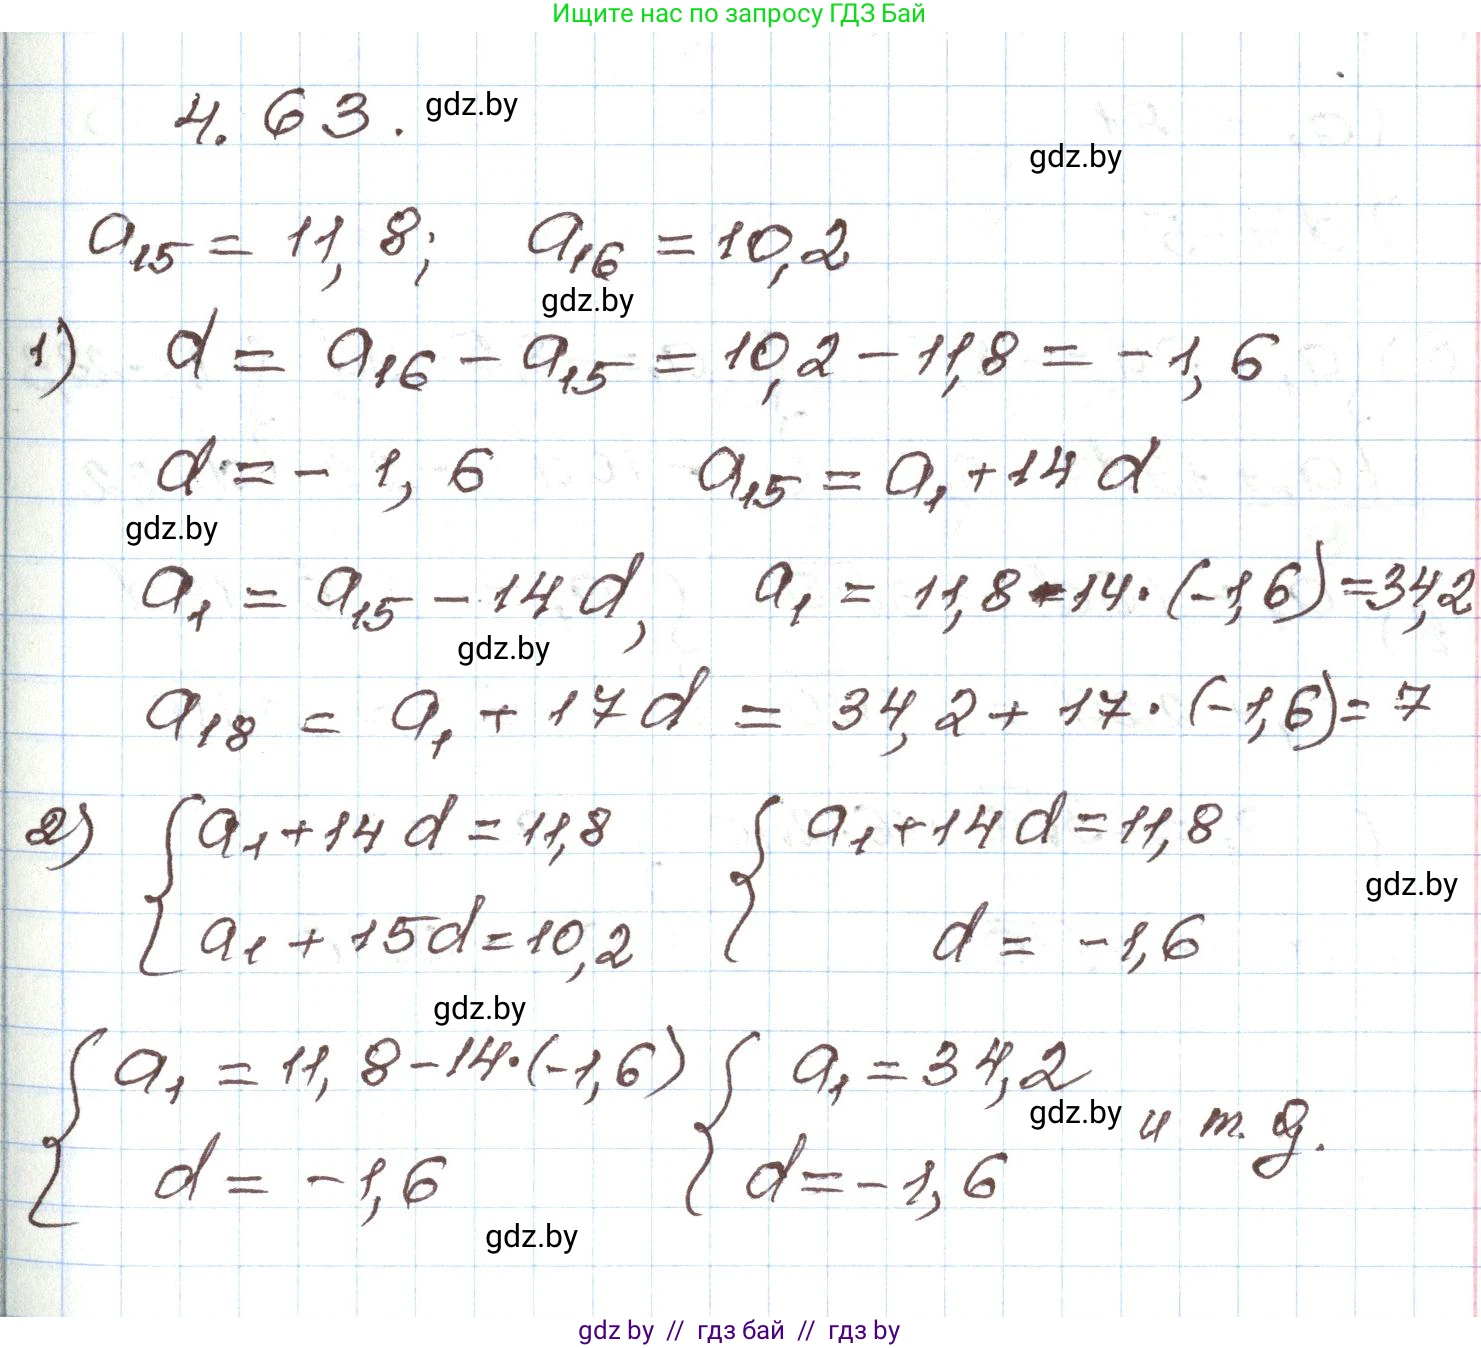 Ищите нас по запросу ГДЗ Бай
4.63. gdz.by
gdz.by
a₁₅ = 11,8; a₁₆ = 10,2
gdz.by
1) d = a₁₆ - a₁₅ = 10,2 - 11,8 = -1,6
d = -1,6 a₁₅ = a₁ + 14d
gdz.by
a₁ = a₁₅ - 14d, a₁ = 11,8 - 14·(-1,6) = 34,2
gdz.by
a₁₈ = a₁ + 17d = 34,2 + 17·(-1,6) = 7
2) { a₁ + 14d = 11,8 { a₁ + 14d = 11,8
gdz.by
a₁ + 15d = 10,2 d = -1,6
gdz.by
{ a₁ = 11,8 - 14·(-1,6) { a₁ = 34,2
gdz.by и т.д.
d = -1,6 d = -1,6
gdz.by
gdz by // гдз бай // гдз by